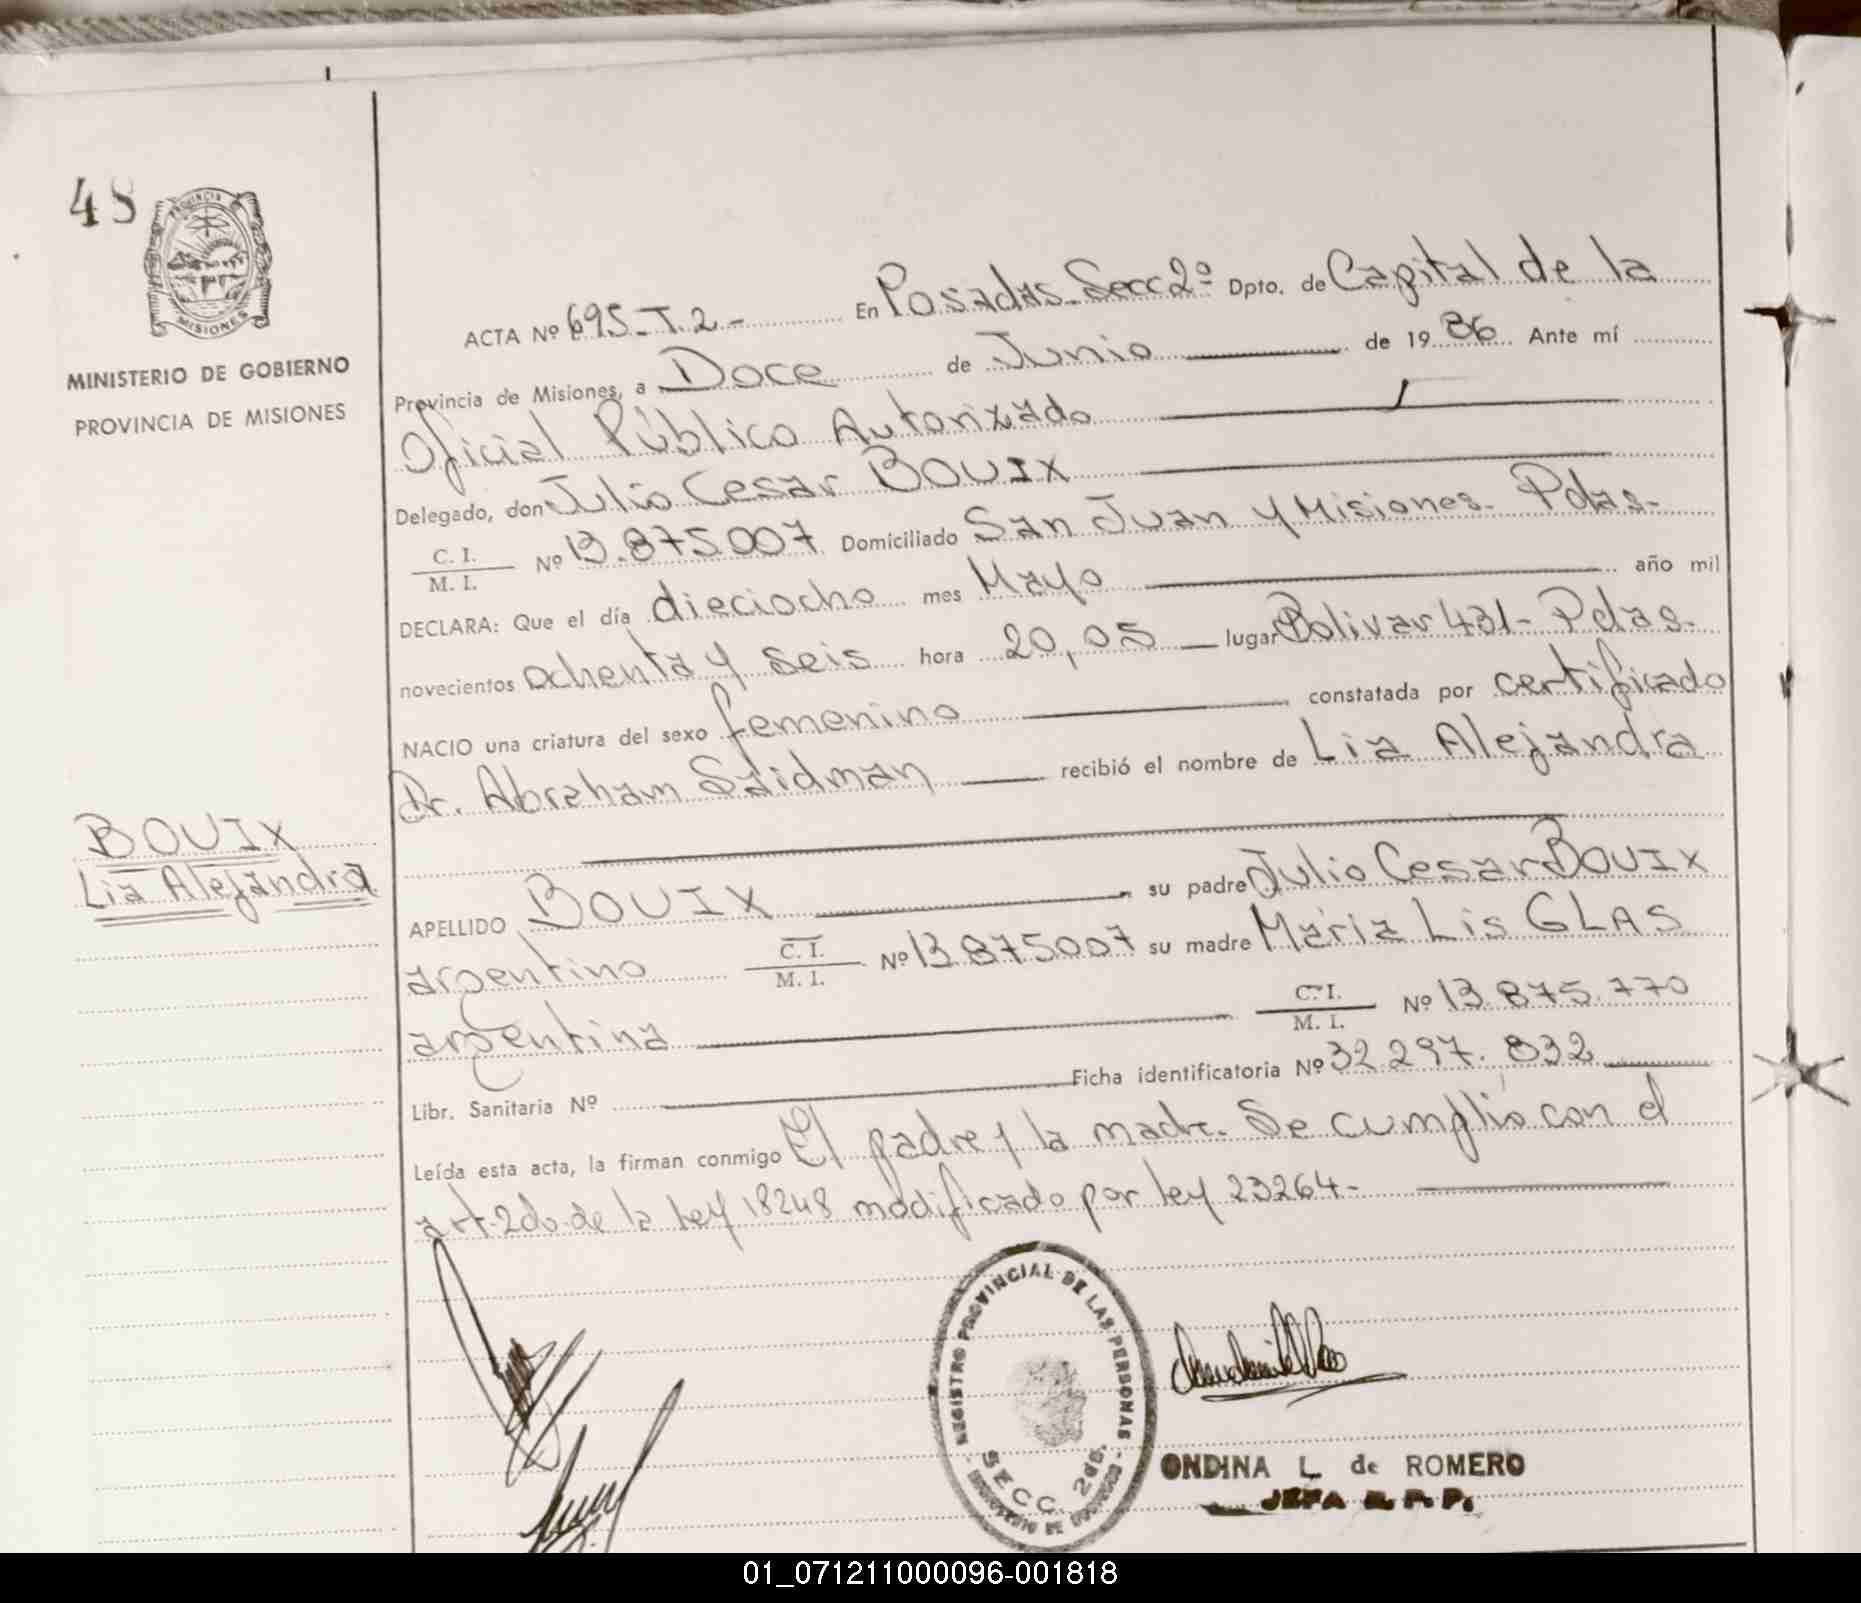 48
PROVINCIA
MISIONES
MINISTERIO DE GOBIERNO
PROVINCIA DE MISIONES
BOUIX
Lia Alejandra
ACTA Nº 695-T.2- En Posadas-Secc 2º Dpto. de Capital de la
Provincia de Misiones, a Doce de Junio de 1986 Ante mí
Oficial Público Autorizado
Delegado, don Julio Cesar BOUIX
C. I.
M. I. Nº 13.875.007 Domiciliado San Juan y Misiones- Pdas-
DECLARA: Que el día dieciocho mes Mayo año mil
novecientos ochenta y seis hora 20,05 lugar Bolivar 431- Pdas-
NACIO una criatura del sexo femenino constatada por certificado
Dr. Abraham Saidman recibió el nombre de Lia Alejandra
APELLIDO BOUIX su padre Julio Cesar BOUIX
argentino C. I. M. I. Nº 13.875.007 su madre Maria Lis GLAS
argentina C. I. M. I. Nº 13.875.770
Libr. Sanitaria Nº Ficha identificatoria Nº 32.297.832
Leída esta acta, la firman conmigo El padre y la madre. Se cumplió con el
art. 2do. de la Ley 18248 modificado por ley 23264-
REGISTRO PROVINCIAL DE LAS PERSONAS
SECC. 2da.
ONDINA L. de ROMERO
JEFA R. P. P.
01_071211000096-001818